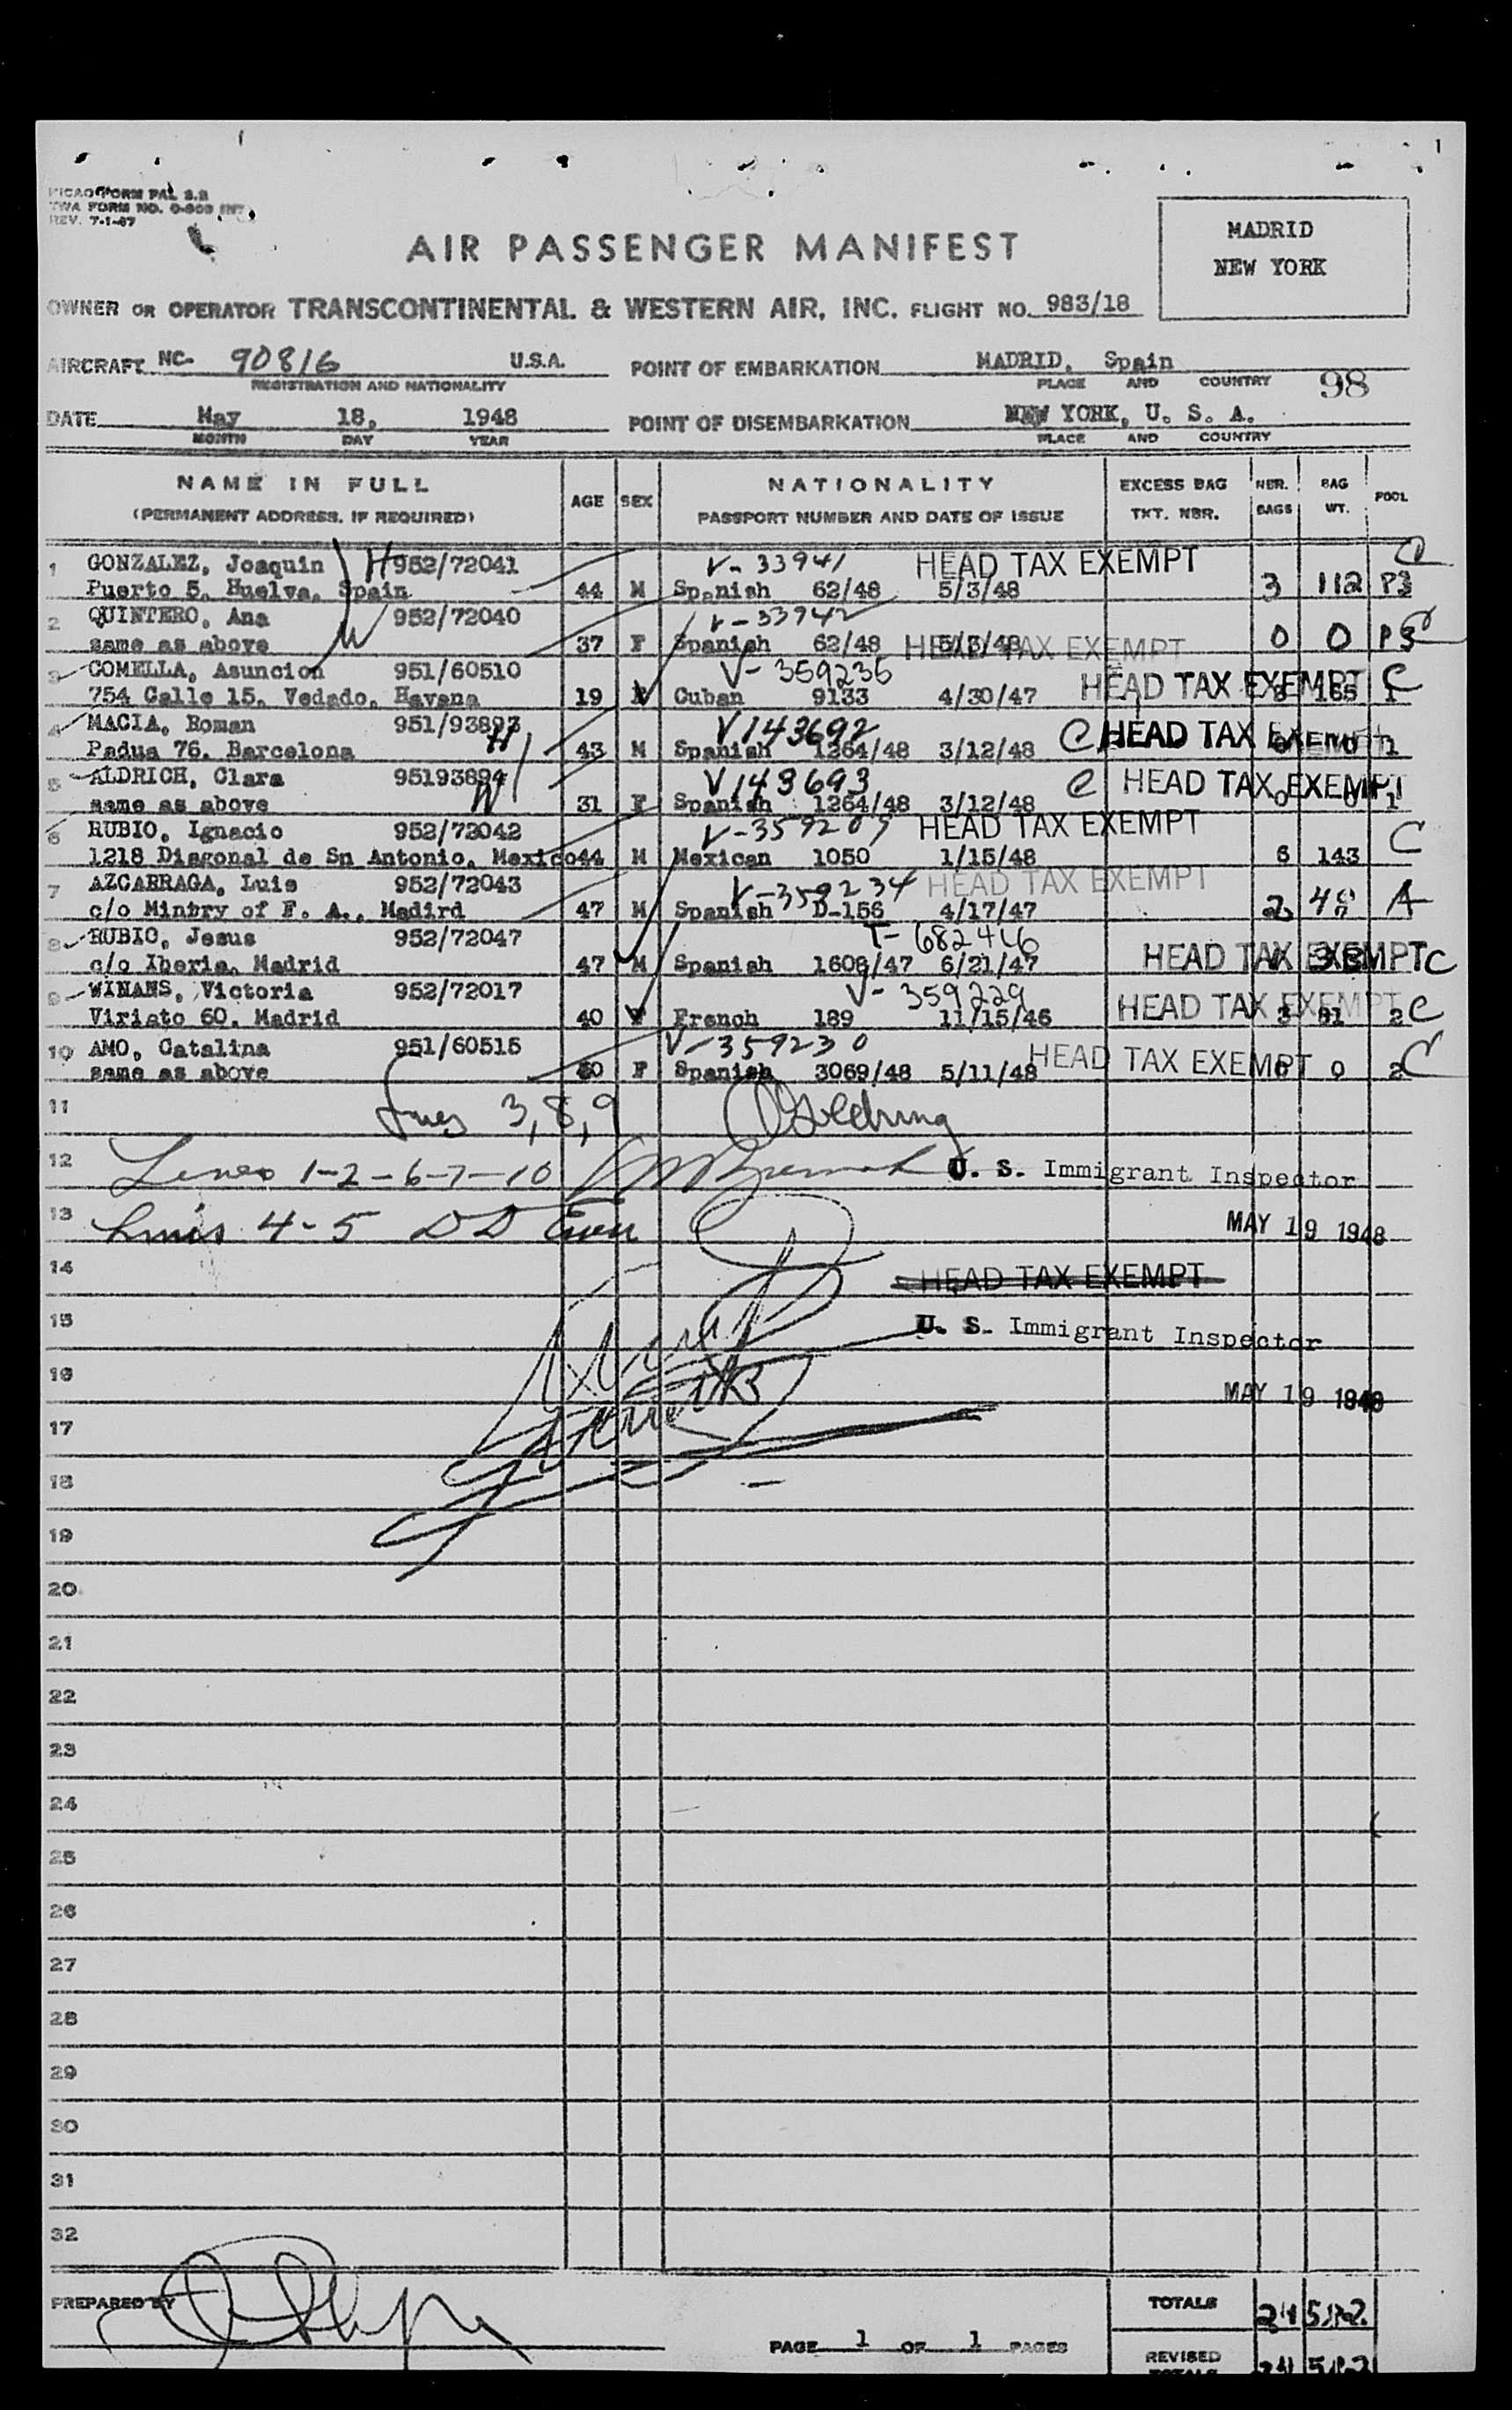 1
ICAO FORM PAL 2.2
TWA FORM NO. 0-809 INT.
REV. 7-1-47
MADRID
NEW YORK
AIR PASSENGER MANIFEST
OWNER OR OPERATOR TRANSCONTINENTAL & WESTERN AIR, INC. FLIGHT NO. 983/18
AIRCRAFT NC- 90816 U.S.A. POINT OF EMBARKATION MADRID, Spain
REGISTRATION AND NATIONALITY PLACE AND COUNTRY 98
DATE May 18, 1948 POINT OF DISEMBARKATION NEW YORK, U. S. A.
MONTH DAY YEAR PLACE AND COUNTRY
NAME IN FULL AGE SEX NATIONALITY EXCESS BAG NBR. BAG POOL
(PERMANENT ADDRESS, IF REQUIRED) PASSPORT NUMBER AND DATE OF ISSUE TKT. NBR. BAGS WT.
1 GONZALEZ, Joaquin H 952/72041 V-33941 HEAD TAX EXEMPT C
Puerto 5, Huelva, Spain 44 M Spanish 62/48 5/3/48 3 112 P3
2 QUINTERO, Ana W 952/72040 V-33942
same as above 37 F Spanish 62/48 5/3/48 HEAD TAX EXEMPT 0 0 P3 C
3 COMELLA, Asuncion 951/60510 V-359235
754 Calle 15, Vedado, Havana 19 Cuban 9133 4/30/47 HEAD TAX EXEMPT 165 1 C
4 MACIA, Roman 951/93893 H V143692
Padua 76, Barcelona 43 M Spanish 1264/48 3/12/48 C HEAD TAX EXEMPT 0 1
5 ALDRICH, Clara 95193894 W V143693
same as above 31 F Spanish 1264/48 3/12/48 C HEAD TAX EXEMPT 0 0 1
6 RUBIO, Ignacio 952/72042 V-359209 HEAD TAX EXEMPT
1218 Diagonal de Sn Antonio, Mexico 44 M Mexican 1050 1/15/48 6 143 C
7 AZCARRAGA, Luis 952/72043 V-359234 HEAD TAX EXEMPT
c/o Mintry of F. A., Madird 47 M Spanish D-156 4/17/47 2 A
8 RUBIO, Jesus 952/72047 T-682446
c/o Iberia, Madrid 47 M Spanish 1608/47 6/21/47 HEAD TAX EXEMPT C
9 WINANS, Victoria 952/72017 V-359229
Viriato 60, Madrid 40 French 189 11/15/46 HEAD TAX EXEMPT 3 91 2 C
10 AMO, Catalina 951/60515 V-359230
same as above 60 F Spanish 3069/48 5/11/48 HEAD TAX EXEMPT 0 0 2 C
11 Lines 3,8,9
12 Lines 1-2-6-7-10 U. S. Immigrant Inspector
13 Lines 4-5 MAY 19 1948
14 HEAD TAX EXEMPT
15 U. S. Immigrant Inspector
16 MAY 19 1948
17
18
19
20
21
22
23
24
25
26
27
28
29
30
31
32
PREPARED BY TOTALS
PAGE 1 OF 1 PAGES REVISED
TOTALS